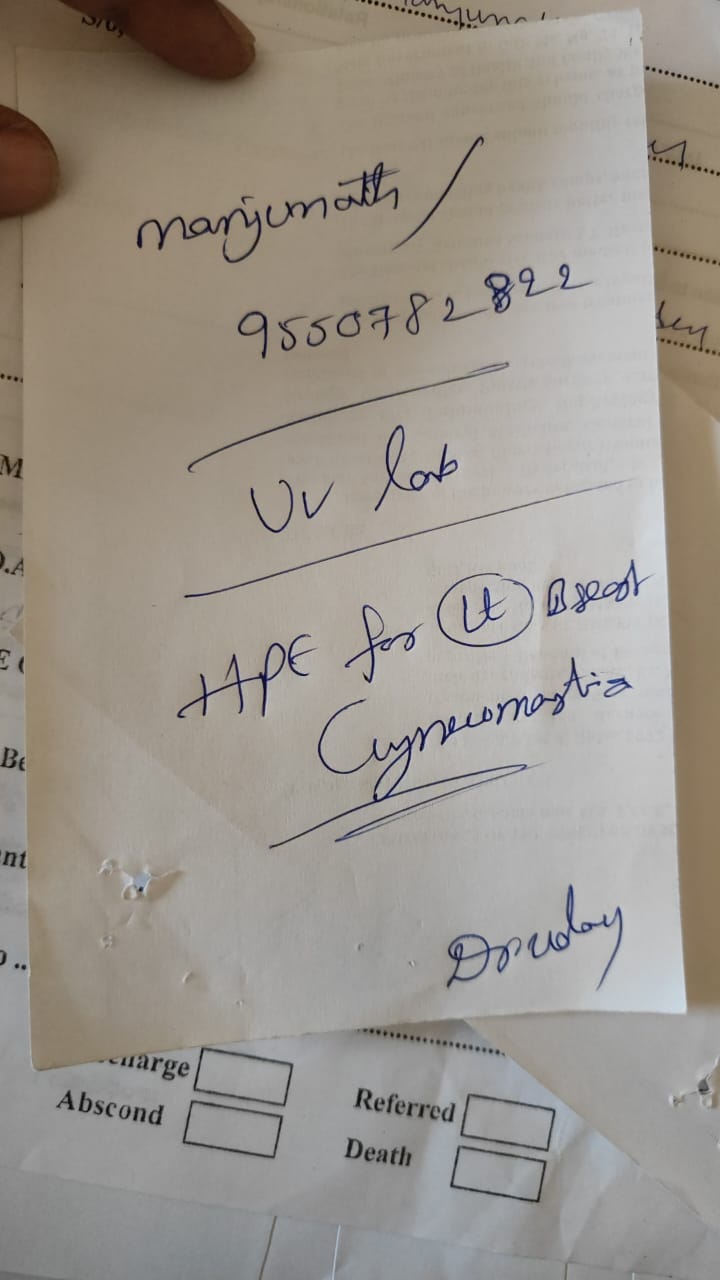 S/o,
Manjunath /
9550782822
UV lab
HPE for Lt Breast
Gynecomastia
Dr uday
M
Be
charge
Abscond
Referred
Death